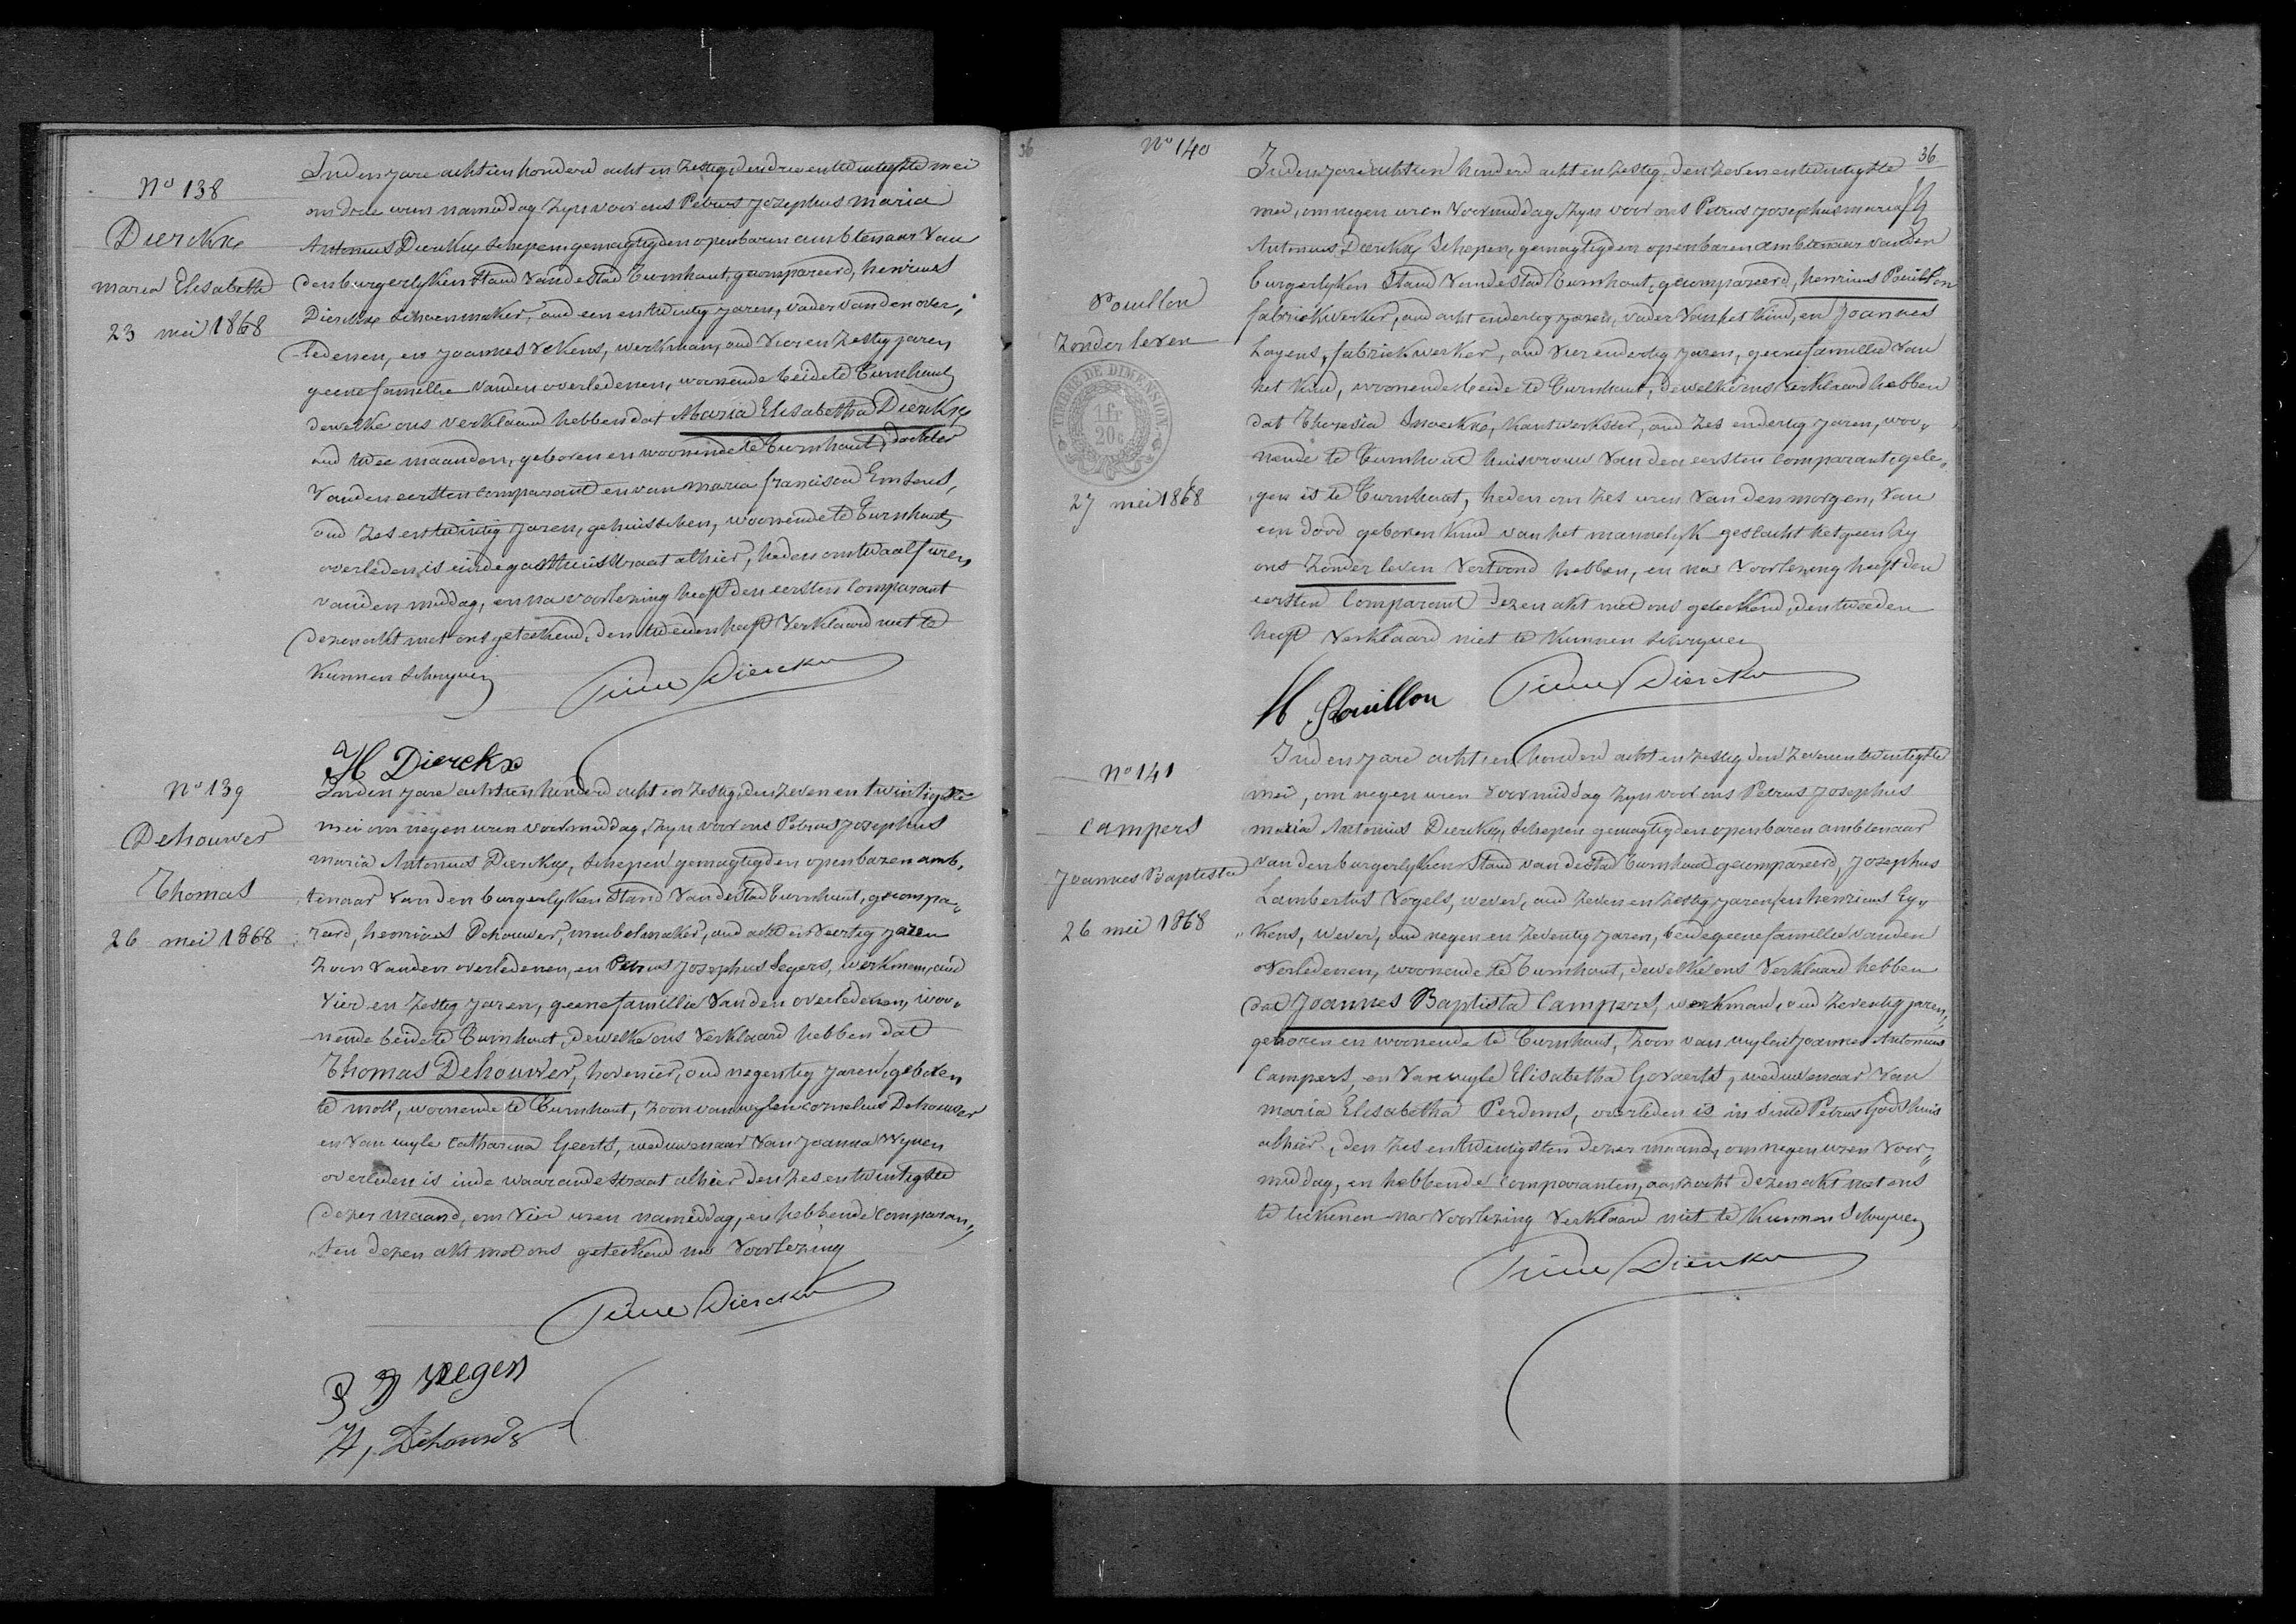 N° 138
Dierckx
Maria Elisabetha
23 mei 1868
In den jare achtien honderd acht en zestig, den drie en twintigste mei
om drie uren namiddag zyn voor ons Petrus Josephus Maria
Antonius Dierckx schepen gemagtigden openbaren ambtenaar van
den burgerlyken stand van de stad Turnhout, gecompareerd, henricus
Dierckx schoenmaker, oud een en twintig jaren, vader van den over,
ledenen, en Joannes Vekens, werkman, oud vier en zestig jaren
geene famillie van den overledenen, woonende beide te Turnhout
dewelke ons verklaard hebben dat Maria Elisabetha Dierckx
oud twee maanden, geboren en woonende te Turnhout, dochter
van den eersten comparant en van maria francisca
oud zes en twintig jaren, gehuisschen, woonende te Turnhout
overleden is in de gasthuisstraat alhier, heden om twaalf uren
van den middag, en na voorlezing heeft den eersten comparant
dezen akt met ons geteekend, den tweeden heeft verklaard niet te
kunnen schryven
Dierckx
H Dierckx
N° 139
Dehouwer
Thomas
26 mei 1868
In den jare achtien honderd acht en zestig, den zeven en twintigste
mei om negen uren voormiddag, zyn voor ons Petrus Josephus
maria Antonius Dierckx, schepen gemagtigden openbaren amb,
tenaar van den burgerlyken stand van de stad Turnhout, gecompa,,
reerd, henricus Dehouwer, meubelmaker, oud acht en veertig jaren
zoon van den overledenen, en Petrus Josephus Segers, werkman, oud
vier en zestig jaren, geene famillie van den overledenen, woo,
nende beide te Turnhout, dewelke ons verklaard hebben dat
Thomas Dehouwer, hovenier, oud negentig jaren, geboren
te moll, woonende te Turnhout, zoon van wylen cornelius Dehouwer
en van wyle Catharina Geerts, weduwenaar van Joanna Wynen
overleden is in de waarandestraat alhier den zes en twintigste
dezer maand, om vier uren namiddag, en hebbende comparan,,
ten dezen akt met ons geteekend na voorlezing
Dierckx
H, Dehouwer
36
N° 140
36
Pouillon
Zonder leven
TIMBRE DE DIMENSION
1 fr.
20 c
27 mei 1868
In den jare achtien honderd acht en zestig, den zeven en twintigste
mei, om negen uren voormiddag zyn voor ons Petrus Josephus maria
Antonius Dierckx schepen, gemagtigden openbaren ambtenaar van den
burgerlyken stand van de stad Turnhout, gecompareerd, henricus Pouillon
fabriekwerker, oud acht en dertig jaren, vader van het kind, en Joannes
Loyens, fabriekwerker, oud vier en dertig jaren, geene famillie van
het kind, woonende beide te Turnhout, dewelke ons verklaard hebben
dat Theresia Snoeckx, kantwerkster, oud zes en dertig jaren, woo,,
nende te Turnhout huisvrouw van den eersten comparant, gele,
gen is te Turnhout, heden om zes uren van den morgen, van
een dood geboren kind van het mannelyk geslacht hetgeen hy
ons zonder leven vertoond hebben, en na voorlezing heeft den
eersten comparant dezen akt met ons geteekend, den tweeden
heeft verklaard niet te kunnen schryven
H Pouillon
Dierckx
N° 141
Campers
Joannes Baptista
26 mei 1868
In den jare achtien honderd acht en zestig den zeven en twintigste
mei, om negen uren voormiddag zyn voor ons Petrus Josephus
maria Antonius Dierckx, schepen gemagtigden openbaren ambtenaar
van den burgerlyken stand van de stad Turnhout gecompareerd, Josephus
Lambertus Vogels, wever, oud zeven en zestig jaren, en henricus Ey,,
kens, wever, oud negen en zeventig jaren, beide geene famillie van den
overledenen, woonende te Turnhout, dewelke ons verklaard hebben
dat Joannes Baptista Campers, werkman, oud zeventig jaren,,
geboren en woonende te Turnhout, zoon van wylen Joannes Antonius
Campers, en van wyle Elisabetha Govaerts, weduwenaar van
maria Elisabetha Perdems, overleden is in sinte Petrus Godshuis
alhier, den zes en twintigsten dezer maand, om negen uren voor,,
middag, en hebbende comparanten, aanzocht dezen akt met ons
te teekenen na voorlezing verklaard niet te kunnen schryven
Dierckx